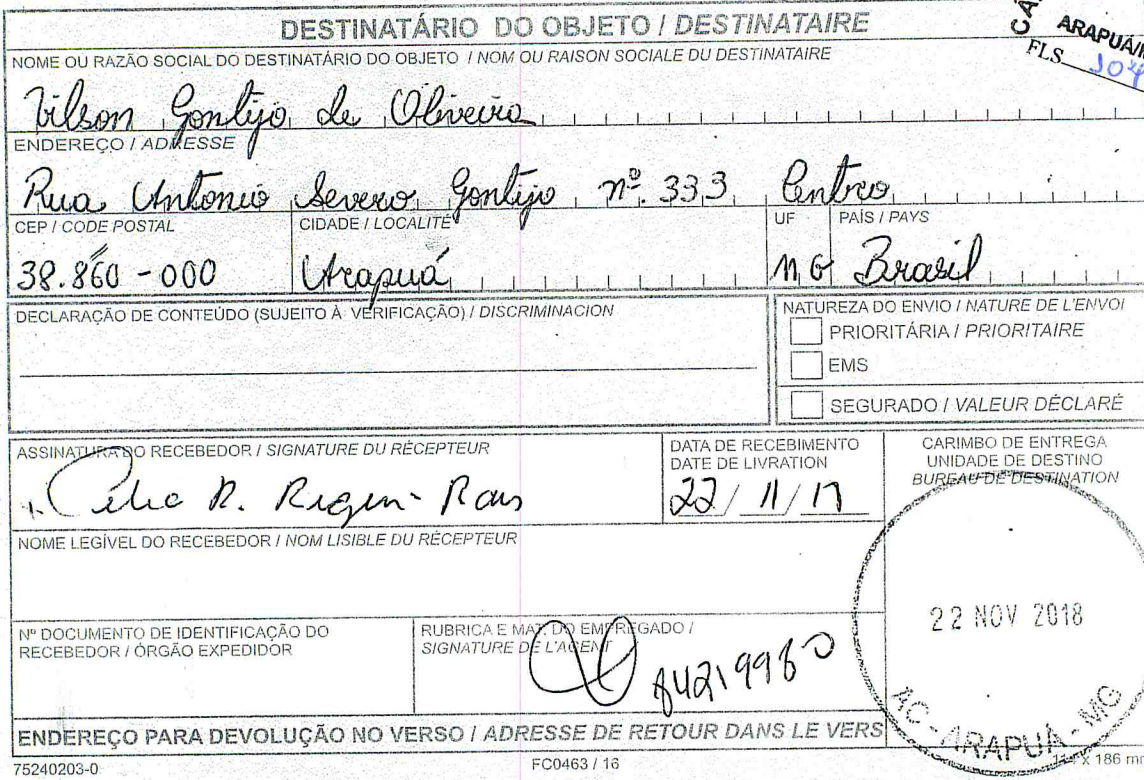 DESTINATÁRIO DO OBJETO / DESTINATAIRE
ARAPUÁ/M
FLS. 104
NOME OU RAZÃO SOCIAL DO DESTINATÁRIO DO OBJETO / NOM OU RAISON SOCIALE DU DESTINATAIRE
Vilson Gontijo de Oliveira
ENDEREÇO / ADRESSE
Rua Antonio Severo Gontijo nº. 333 Centro
CEP / CODE POSTAL CIDADE / LOCALITÉ UF PAÍS / PAYS
38.860-000 Arapuá MG Brasil
DECLARAÇÃO DE CONTEÚDO (SUJEITO À VERIFICAÇÃO) / DISCRIMINACION
NATUREZA DO ENVIO / NATURE DE L'ENVOI
PRIORITÁRIA / PRIORITAIRE
EMS
SEGURADO / VALEUR DÉCLARÉ
ASSINATURA DO RECEBEDOR / SIGNATURE DU RÉCEPTEUR
R.
DATA DE RECEBIMENTO
DATE DE LIVRATION
22/11/17
CARIMBO DE ENTREGA
UNIDADE DE DESTINO
BUREAU DE DESTINATION
NOME LEGÍVEL DO RECEBEDOR / NOM LISIBLE DU RÉCEPTEUR
22 NOV 2018
AC - ARAPUÁ - MG
Nº DOCUMENTO DE IDENTIFICAÇÃO DO
RECEBEDOR / ÓRGÃO EXPEDIDOR
RUBRICA E MAT. DO EMPREGADO /
SIGNATURE DE L'AGENT
84219980
ENDEREÇO PARA DEVOLUÇÃO NO VERSO / ADRESSE DE RETOUR DANS LE VERS
75240203-0 FC0463 / 16 114 x 186 mm